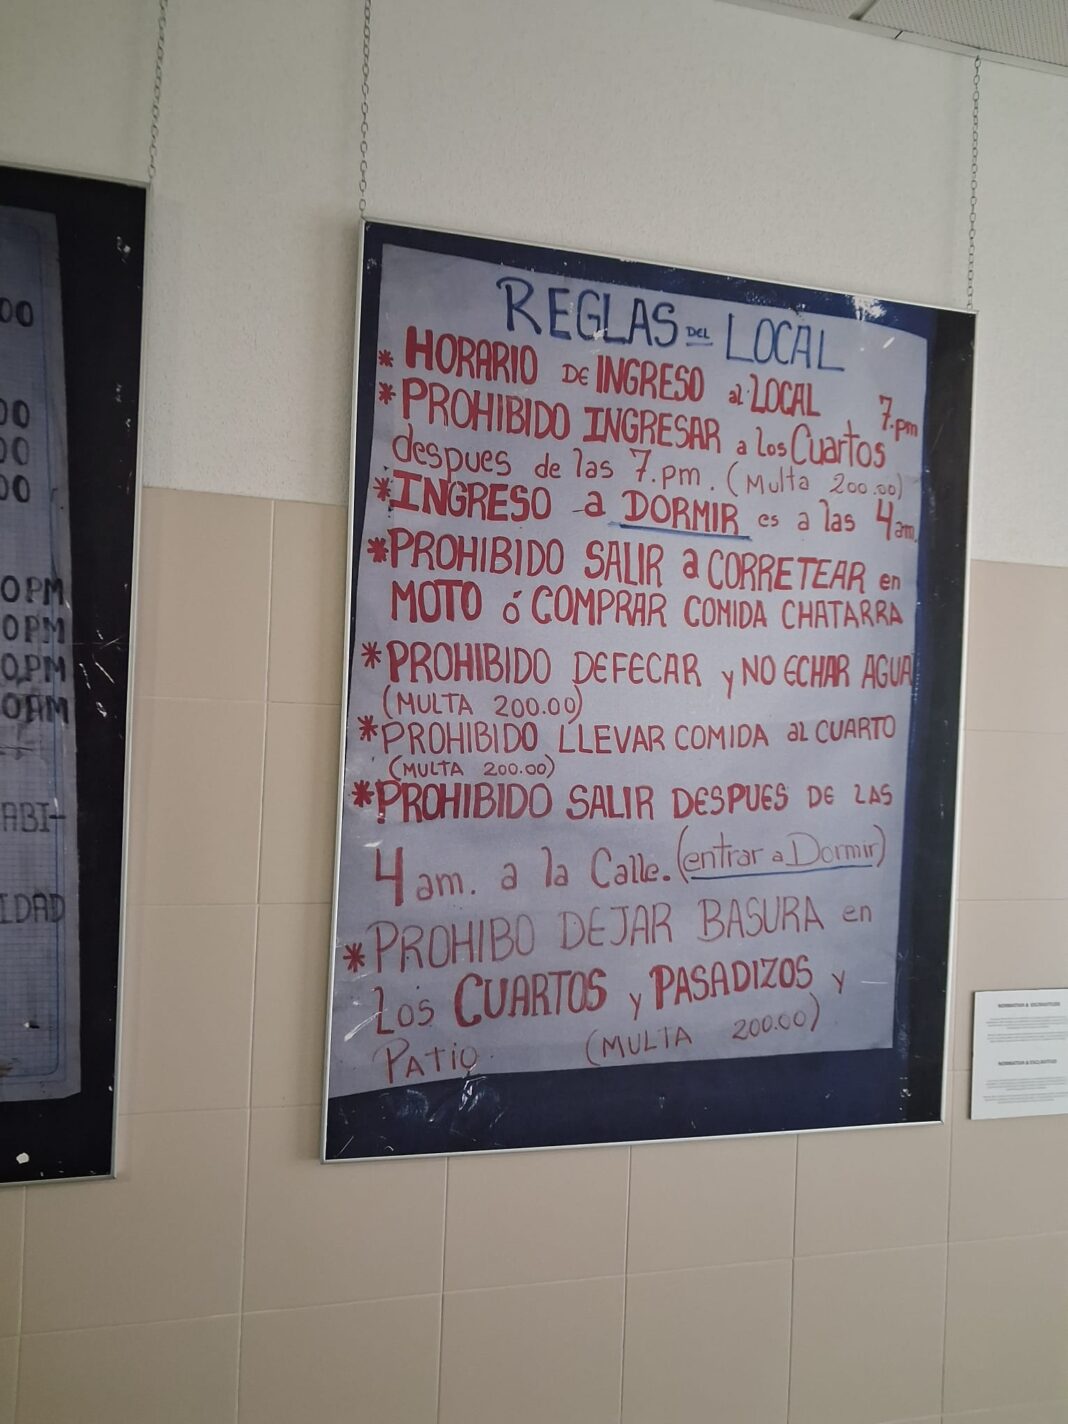 REGLAS DEL LOCAL
* HORARIO DE INGRESO al LOCAL 7.pm
* PROHIBIDO INGRESAR a los Cuartos
despues de las 7.pm. (Multa 200.00)
* INGRESO a DORMIR es a las 4am.
* PROHIBIDO SALIR a CORRETEAR en
MOTO ó COMPRAR COMIDA CHATARRA
* PROHIBIDO DEFECAR y NO ECHAR AGUA
(MULTA 200.00)
* PROHIBIDO LLEVAR COMIDA al CUARTO
(MULTA 200.00)
* PROHIBIDO SALIR DESPUES DE LAS
4 am. a la Calle. (entrar a Dormir)
* PROHIBO DEJAR BASURA en
Los CUARTOS y PASADIZOS y
PATIO. (MULTA 200.00)
00
00
00
00
0PM
0PM
0.PM
0AM
ABI-
IDAD